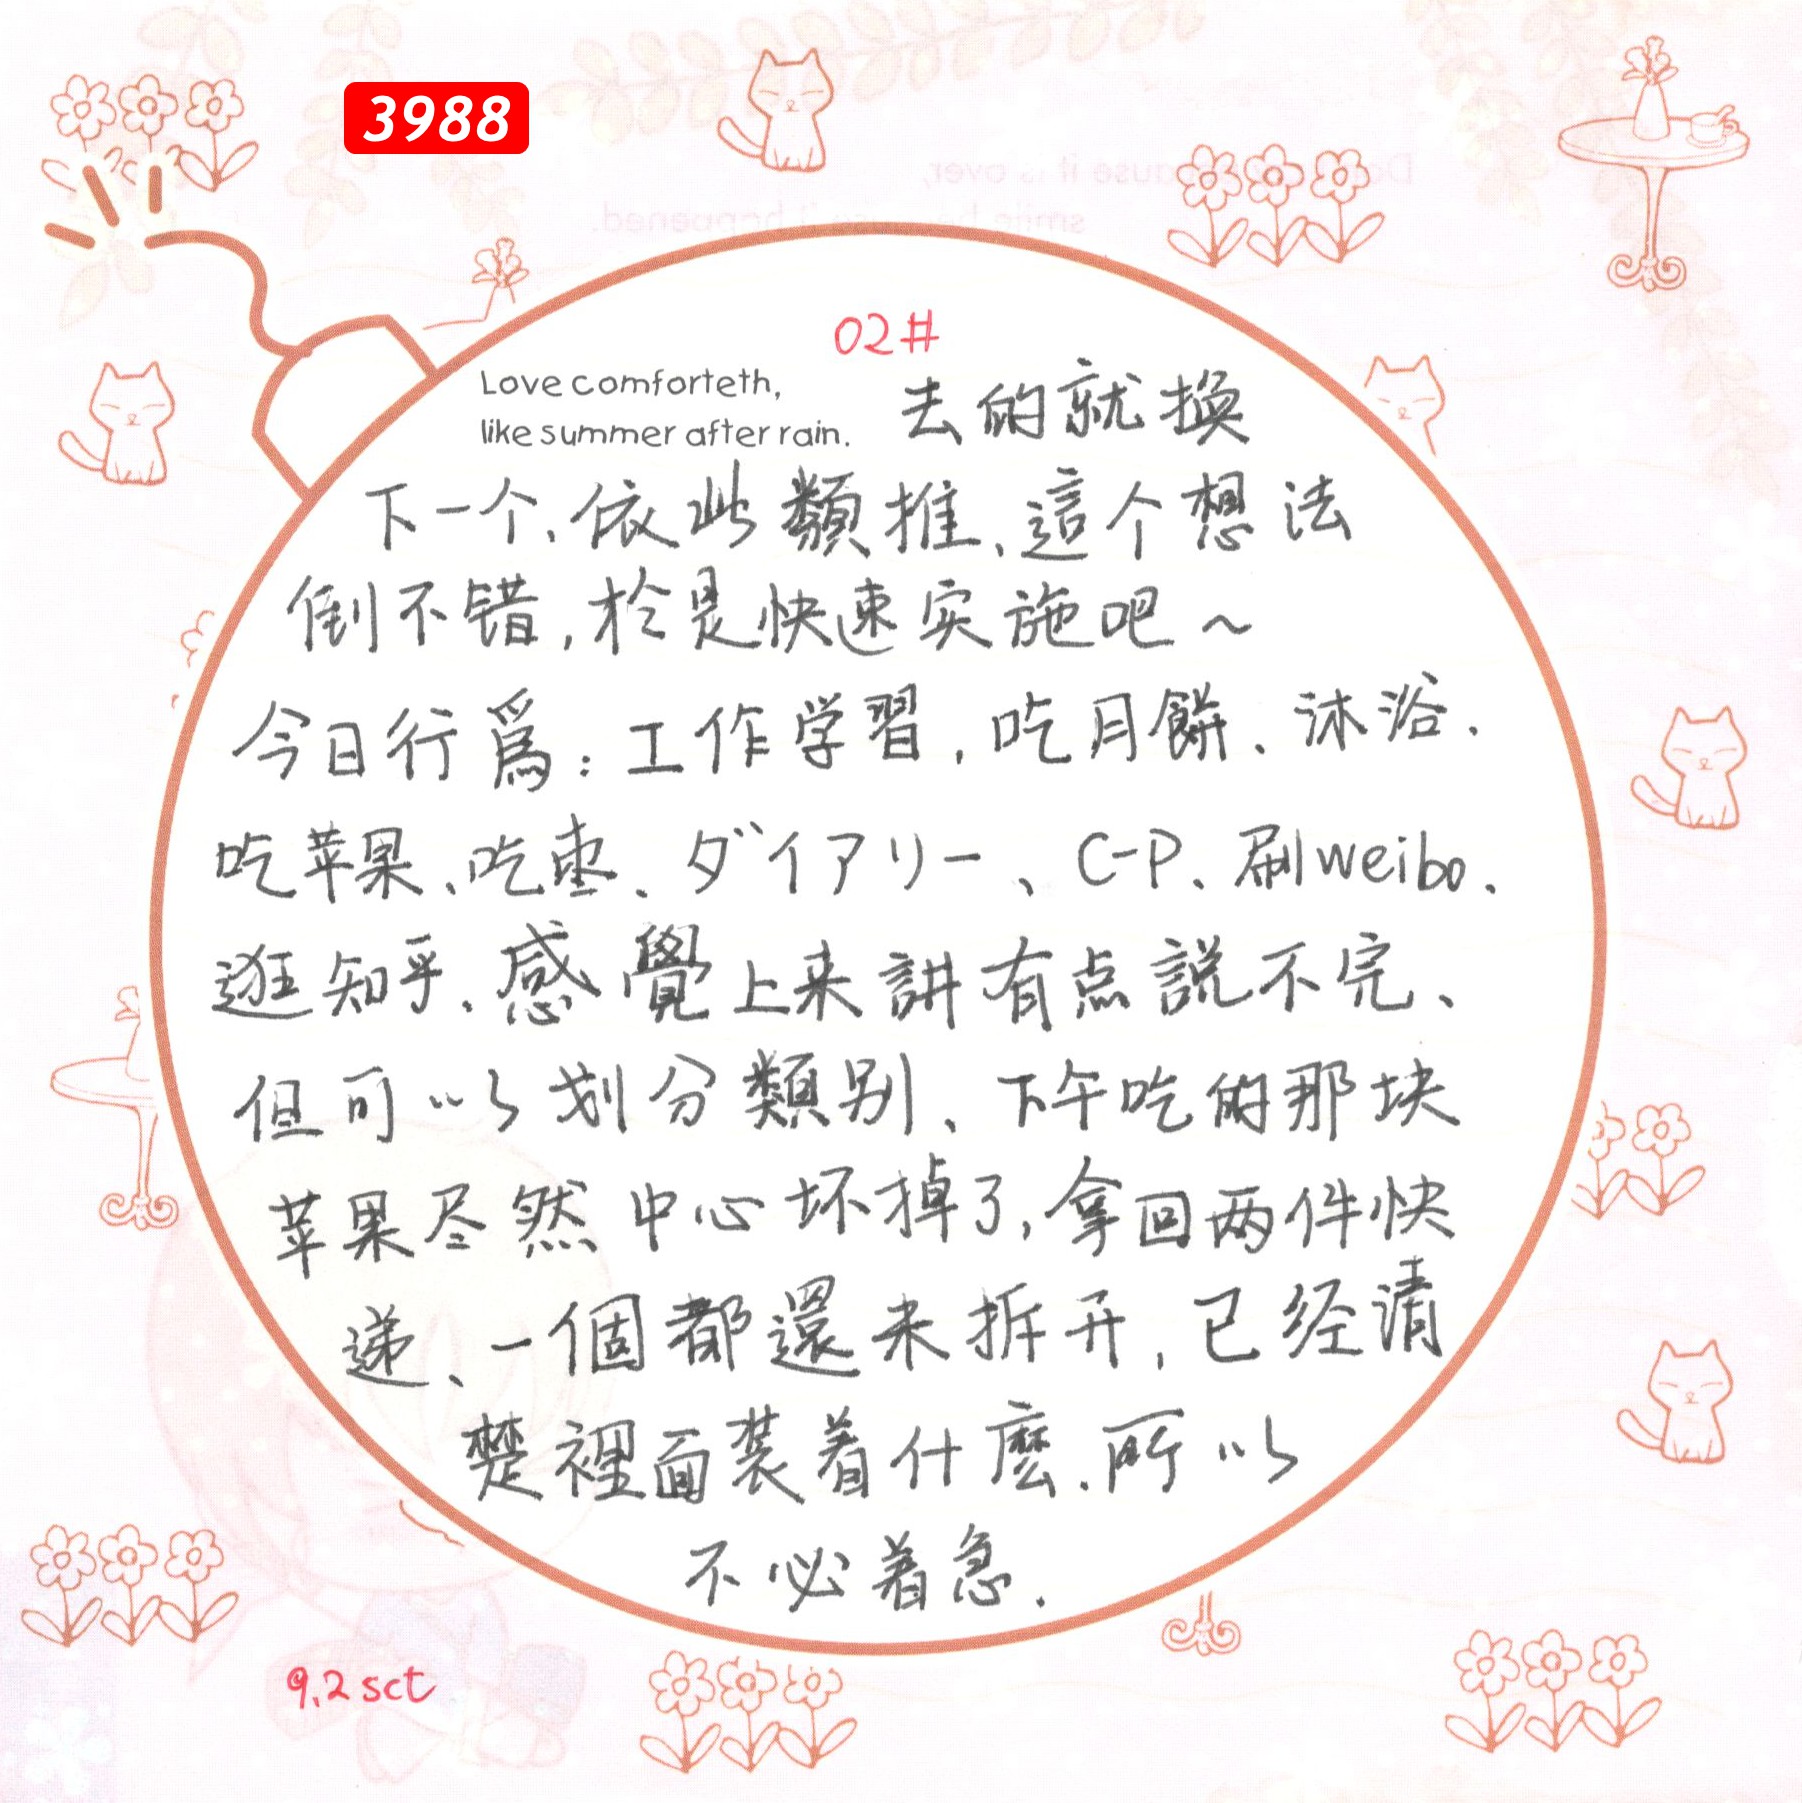 3988
Don't cry because it is over,
smile because it happened.
02#
Love comforteth,
like summer after rain.
去的就換
下一个、依此類推、這个想法
倒不错,於是快速实施吧～
今日行爲:工作学習,吃月餅、沐浴、
吃苹果、吃枣、ダイアリー、C-P、刷weibo、
逛知乎、感覺上来講有点說不完、
但可以划分類别、下午吃的那块
苹果尽然中心坏掉了,拿回两件快
递、一個都還未拆开,已经清
楚裡面装着什麼、所以
不必着急.
9.2 sct